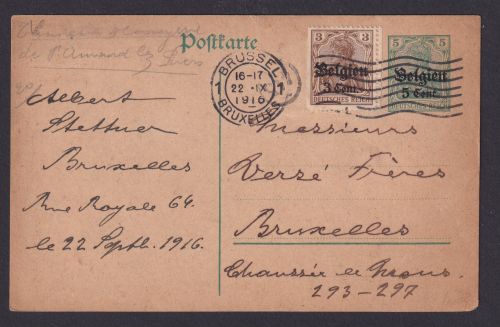 de St Amand
Postkarte
BRÜSSEL
16-17
1 22.IX 1
1916
BRUXELLES
3 3
Belgien
3 Cent.
DEUTSCHES REICH
5 5
Belgien
5 Cent.
Albert
Stettner
Bruxelles
Rue Royale 64.
le 22 Septb. 1916.
Messieurs
Verzé Frères
Bruxelles
Chaussée de Mons
293-297